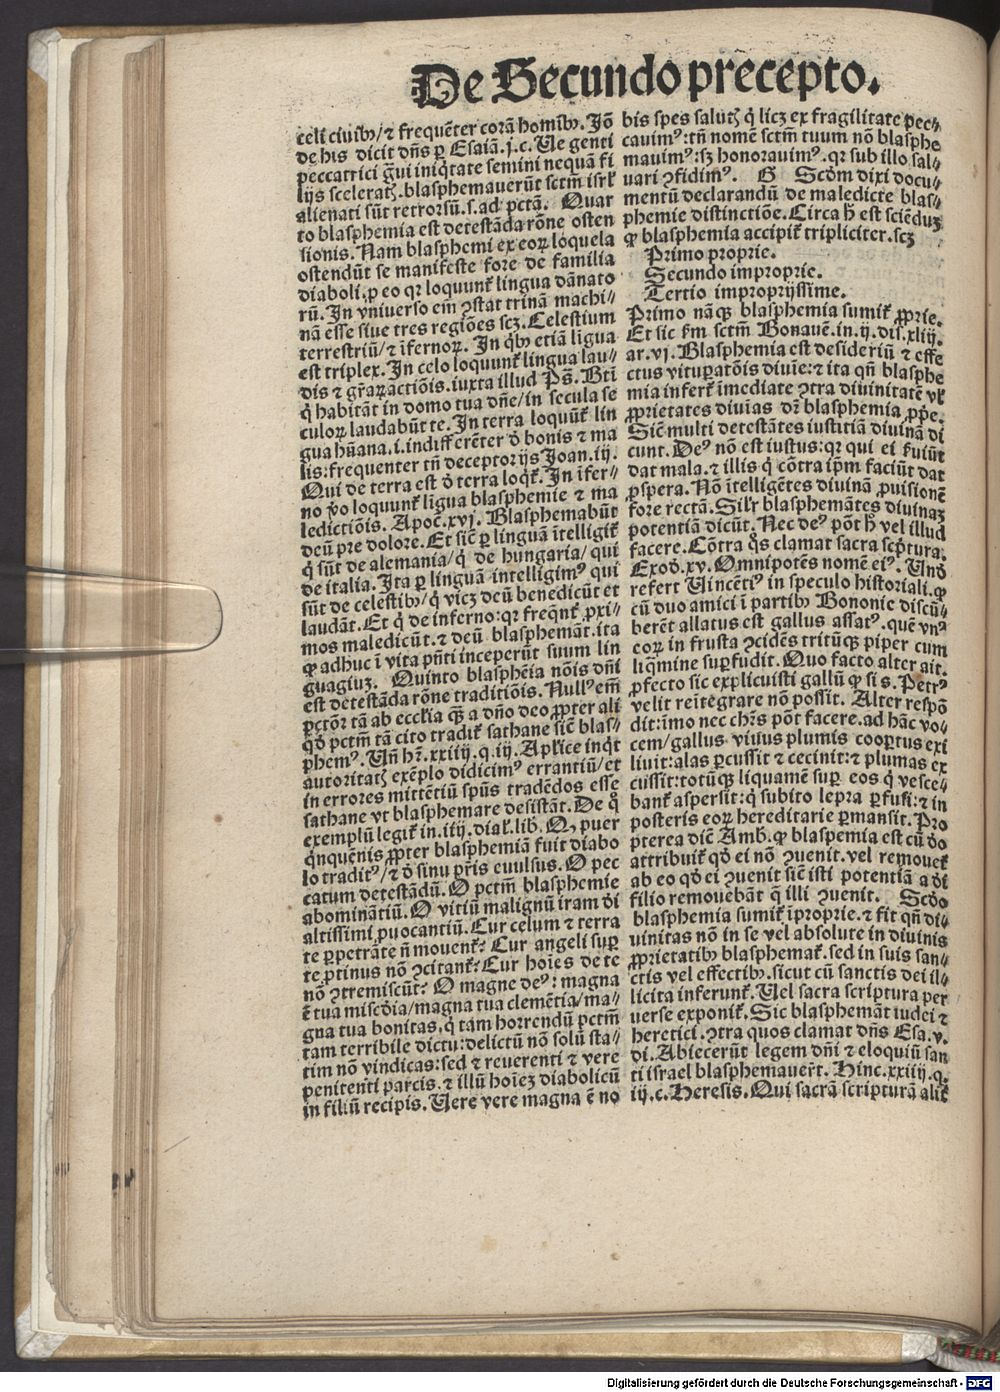 De Secundo precepto.
celi ciuibꝫ/⁊ frequẽter corã homĩbꝫ. Jõ
de his dicit dñs ꝑ Esaiã.j.c. Ue genti
peccatrici g̃ui iniq̃tate semini nequã fi
lijs sceleratꝭ. blasphemauerũt sctm̃ isrl̃
alienati sũt retrorsũ.s.ad pctã. Quar
to blasphemia est detestãda rõne osten
sionis. Nam blasphemi ex eoꝝ loquela
ostendũt se manifeste fore de familia
diaboli, ꝑ eo qꝛ loquunt᷑ lingua dãnato
rũ. Jn vniuerso em̃ ꝯstat trinã machi⸗
nã esse siue tres regiões scꝫ. Celestium
terrestriũ/⁊ ĩfernoꝝ. Jn q̃bꝫ etiã lĩgua
est triplex. Jn celo loquunt᷑ lingua lau⸗
dis ⁊ gr̃aꝝactiõis. iuxta illud Ps̃. Bti
q̃ habitãt in domo tua dñe/in secula se
culoꝝ laudabũt te. Jn terra loquũt᷑ lin
gua hũana.i.indifferẽter ð bonis ⁊ ma
lis: frequenter tñ deceptorijs Joan.iij.
Qui de terra est ð terra loq̃t᷑. Jn ĩfer⸗
no ṽo loquunt᷑ lĩgua blasphemie ⁊ ma
ledictiõis. Apoc̃.xvj. Blasphemabũt
deũ pre dolore. Et sic̃ ꝑ linguã ĩtelligit᷑
q̃ sũt de alemania/q̃ de hungaria/ qui
de italia. Jta ꝑ linguã intelligimꝰ qui
sũt de celestibꝫ/q̃ vicꝫ deũ benedicũt et
laudãt. Et q̃ de inferno: qꝛ freq̃nt᷑ ꝓxi⸗
mos maledicũt.⁊ deũ blasphemãt. ita
ꝙ adhuc ĩ vita pñti inceperũt suum lin
guagiuꝫ. Quinto blasphẽia nõis dñi
est detestãda rõne traditiõis. Nullꝰ em̃
pctõꝝ tã ab eccl̃ia q̃ꝫ a dño deo ꝓpter ali
q̃ð pctm̃ tã cito tradit᷑ sathane sic̃ blas⸗
phemꝰ. Uñ hr̃.xxiiij.q.iij. Apl̃ice inq̃t
autoritatꝭ exẽplo didicimꝰ errantiũ/et
in errores mittẽtiũ spũs tradẽdos esse
sathane vt blasphemare desistãt. De q̃
exemplũ legit᷑ in.iiij.dial̃.lib. Q, puer
q̃nquẽnis ꝓpter blasphemiã fuit diabo
lo traditꝰ/⁊ ð sinu pr̃is euulsus. O pec
catum detestãdũ. O pctm̃ blasphemie
abominãtiũ. O vitiũ malignũ iram ði
altissimi ꝓuocantiũ. Cur celum ⁊ terra
te ꝑpetrãte ñ mouent᷑? Cur angeli suꝑ
te ꝓtinus nõ ꝯcitant᷑? Cur hoĩes de te
nõ ꝯtremiscũt? O magne deꝰ: magna
ẽ tua misc̃dia/magna tua clemẽtia/ma⸗
gna tua bonitas, q̃ tam horrendũ pctm̃
tam terribile dictu: delictũ nõ solũ sta⸗
tim nõ vindicas: sed ⁊ reuerenti ⁊ vere
penitenti parcis.⁊ illũ hoĩeꝫ diabolicũ
in filiũ recipis. Uere vere magna ẽ no
bis spes salutꝭ q̃ licꝫ ex fragilitate pec⸗
cauimꝰ: tñ nomẽ sctm̃ tuum nõ blasphe
mauimꝰ: sꝫ honorauimꝰ. qꝛ sub illo sal⸗
uari ꝯfidimꝰ. G Scðm dixi docu⸗
mentũ declarandũ de maledicte blas⸗
phemie distinctiõe. Circa h̃ est sciẽduꝫ
ꝙ blasphemia accipit᷑ tripliciter. scꝫ
Primo proprie.
Secundo improprie.
Tertio impropriissime.
Primo nãqꝫ blasphemia sumit᷑ ꝓprie.
Et sic ẜm sctm̃ Bonauẽ.in.ij.dis.xliij.
ar.vj. Blasphemia est desideriũ ⁊ effe
ctus vituꝑatõis diuĩe: ⁊ ita qñ blasphe
mia infert᷑ ĩmediate ꝯtra diuinitatẽ vl̃
ꝓprietates diuĩas dr̃ blasphemia ꝓp̃e.
Sic̃ multi detestãtes iustitiã diuinã di
cunt. Deꝰ nõ est iustus: qꝛ qui ei ẜuiũt
dat mala.⁊ illis q̃ cõtra ip̃m faciũt dat
ꝓspera. Nõ ĩtelligẽtes diuinã ꝓuisionẽ
fore rectã. Silr̃ blasphemãtes diuinaꝫ
potentiã dicũt. Nec deꝰ põt h̃ vel illud
facere. Cõtra q̃s clamat sacra scp̃tura.
Exoð.xv. Omnipotẽs nomẽ eiꝰ. Unð
refert Uincẽtiꝰ in speculo historiali.ꝙ
cũ duo amici ĩ partibꝫ Bononie discũ⸗
berẽt allatus est gallus assatꝰ. quẽ vnꝰ
eoꝝ in frusta ꝯcidẽs tritũqꝫ piper cum
liq̃mine suꝑfudit. Quo facto alter ait.
ꝓfecto sic explicuisti gallũ ꝙ si s. Petrꝰ
velit reĩtegrare nõ possit. Alter respõ
dit: ĩmo nec chr̃s põt facere. ad hãc vo⸗
cem/gallus viuus plumis cooꝑtus exi
liuit: alas ꝑcussit ⁊ cecinit: ⁊ plumas ex
cussit: totũqꝫ liquamẽ suꝑ eos q̃ vesce⸗
bant᷑ aspersit: q̃ subito lepra ꝑfusi: ⁊ in
posteris eoꝝ hereditarie ꝑmansit. Pro
pterea dic̃ Amb. ꝙ blaspemia est cũ ðo
attribuit᷑ qð ei nõ ꝯuenit. vel remouet᷑
ab eo qð ei ꝯuenit sic̃ isti potentiã a ði
filio remouebãt q̃ illi ꝯuenit. Scðo
blasphemia sumit᷑ ĩproprie.⁊ fit qñ di⸗
uinitas nõ in se vel absolute in diuinis
ꝓprietatibꝫ blasphemat᷑. sed in suis san⸗
ctis vel effectibꝫ. sicut cũ sanctis dei il⸗
licita inferunt᷑. Uel sacra scriptura per
uerse exponit᷑. Sic blasphemãt iudei ⁊
heretici. ꝯtra quos clamat dñs Esa.v.
di. Abiecerũt legem dñi ⁊ eloquiũ san
ti israel blasphemauer̃t. Hinc.xxiiij.q.
iij.c.Heresis. Qui sacrã scripturã alit᷑
Digitalisierung gefördert durch die Deutsche Forschungsgemeinschaft - DFG